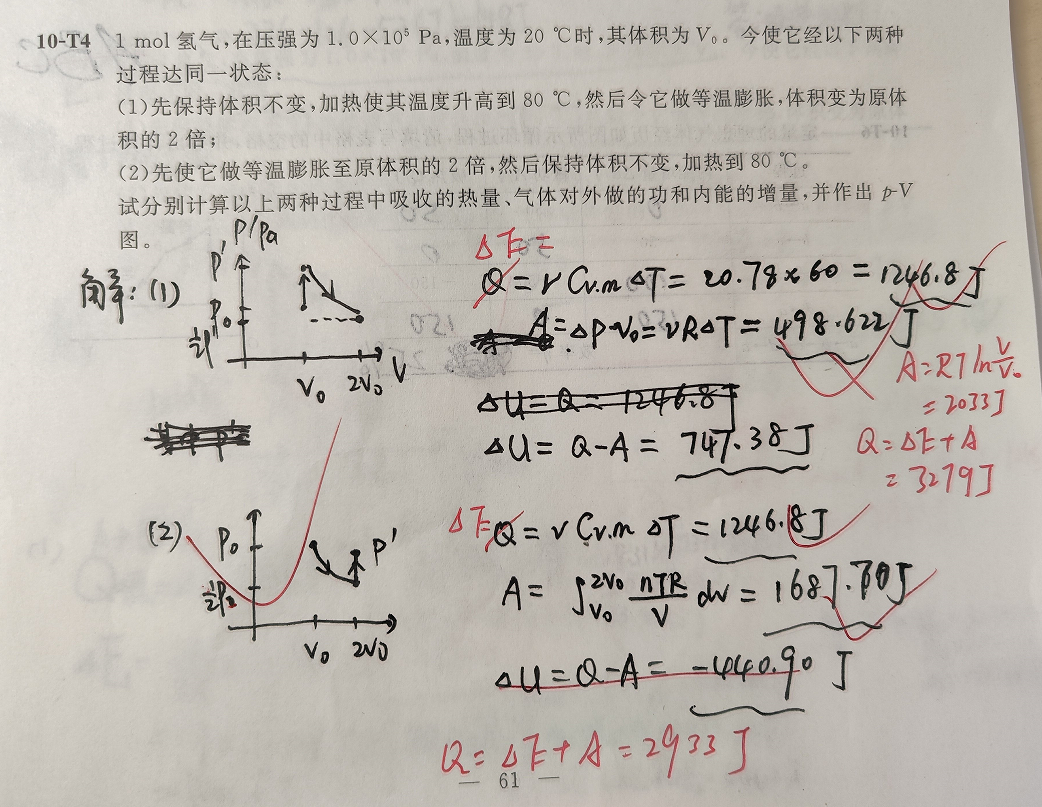 10-T4 1 mol 氢气,在压强为 1.0×10⁵ Pa,温度为 20 ℃时,其体积为 V₀。今使它经以下两种
过程达同一状态:
(1)先保持体积不变,加热使其温度升高到 80 ℃,然后令它做等温膨胀,体积变为原体
积的 2 倍;
(2)先使它做等温膨胀至原体积的 2 倍,然后保持体积不变,加热到 80 ℃。
试分别计算以上两种过程中吸收的热量、气体对外做的功和内能的增量,并作出 p-V
图。
解: (1)
P/Pa
P'
P₀
½P'
V₀ 2V₀ V
ΔE =
Q = νCv.m ΔT = 20.78×60 = 1246.8J
A = ΔP·V₀ = νRΔT = 498.622J
A = RT ln V/V₀
= 2033J
ΔU = Q = 1246.8J
ΔU = Q-A = 747.38J
Q = ΔE+A
= 3279J
(2)
P₀
P'
V₀ 2V₀
ΔE
Q = νCv.m ΔT = 1246.8J
A = ∫_{V₀}^{2V₀} nTR/V dv = 1687.70J
ΔU = Q-A = -440.90 J
Q = ΔE+A = 2933 J
— 61 —